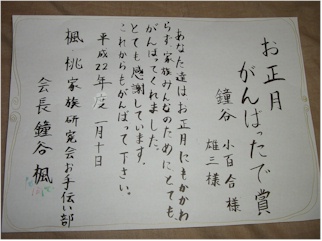 お正月
がんばったで賞
鐘谷 小百合様
雄三様
あなた達はお正月にもかかわ
らず家族みんなのためにとても、
がんばってくれました。
とても感謝しています。
これからもがんばって下さい。
平成22年度 一月十日
楓・桃家族研究会お手伝い部
会長 鐘谷 楓